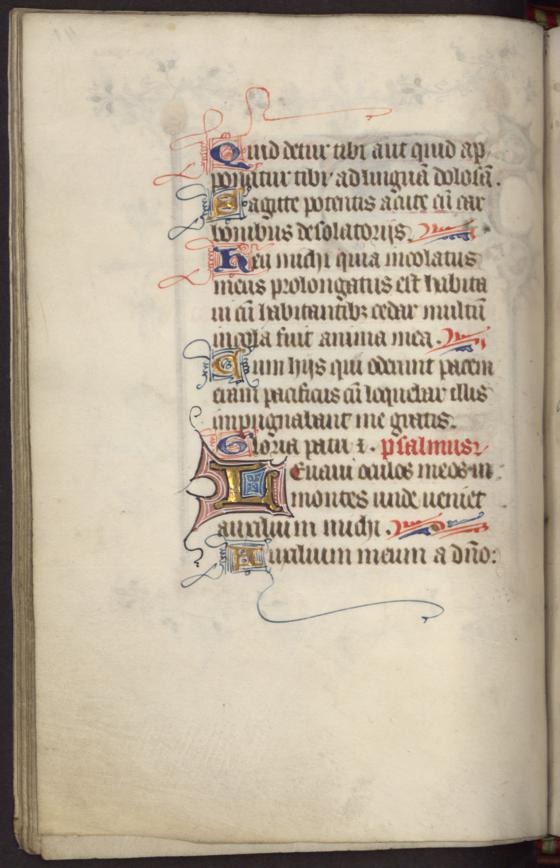 Quid detur tibi aut quid ap
ponatur tibi ad linguā dolosā.
Sagitte potentis acute cū car
bonibus desolatorijs.
Heu michi quia incolatus
meus prolongatus est habita
ui cū habitantibȝ cedar multū
incola fuit anima mea.
Cum hijs qui oderunt pacem
eram pacificus cū loquebar illis
impugnabant me gratis.
Gloria patri ⁊. psalmus
Leuaui oculos meos in
montes unde ueniet
auxilium michi.
Auxilium meum a dn̄o: